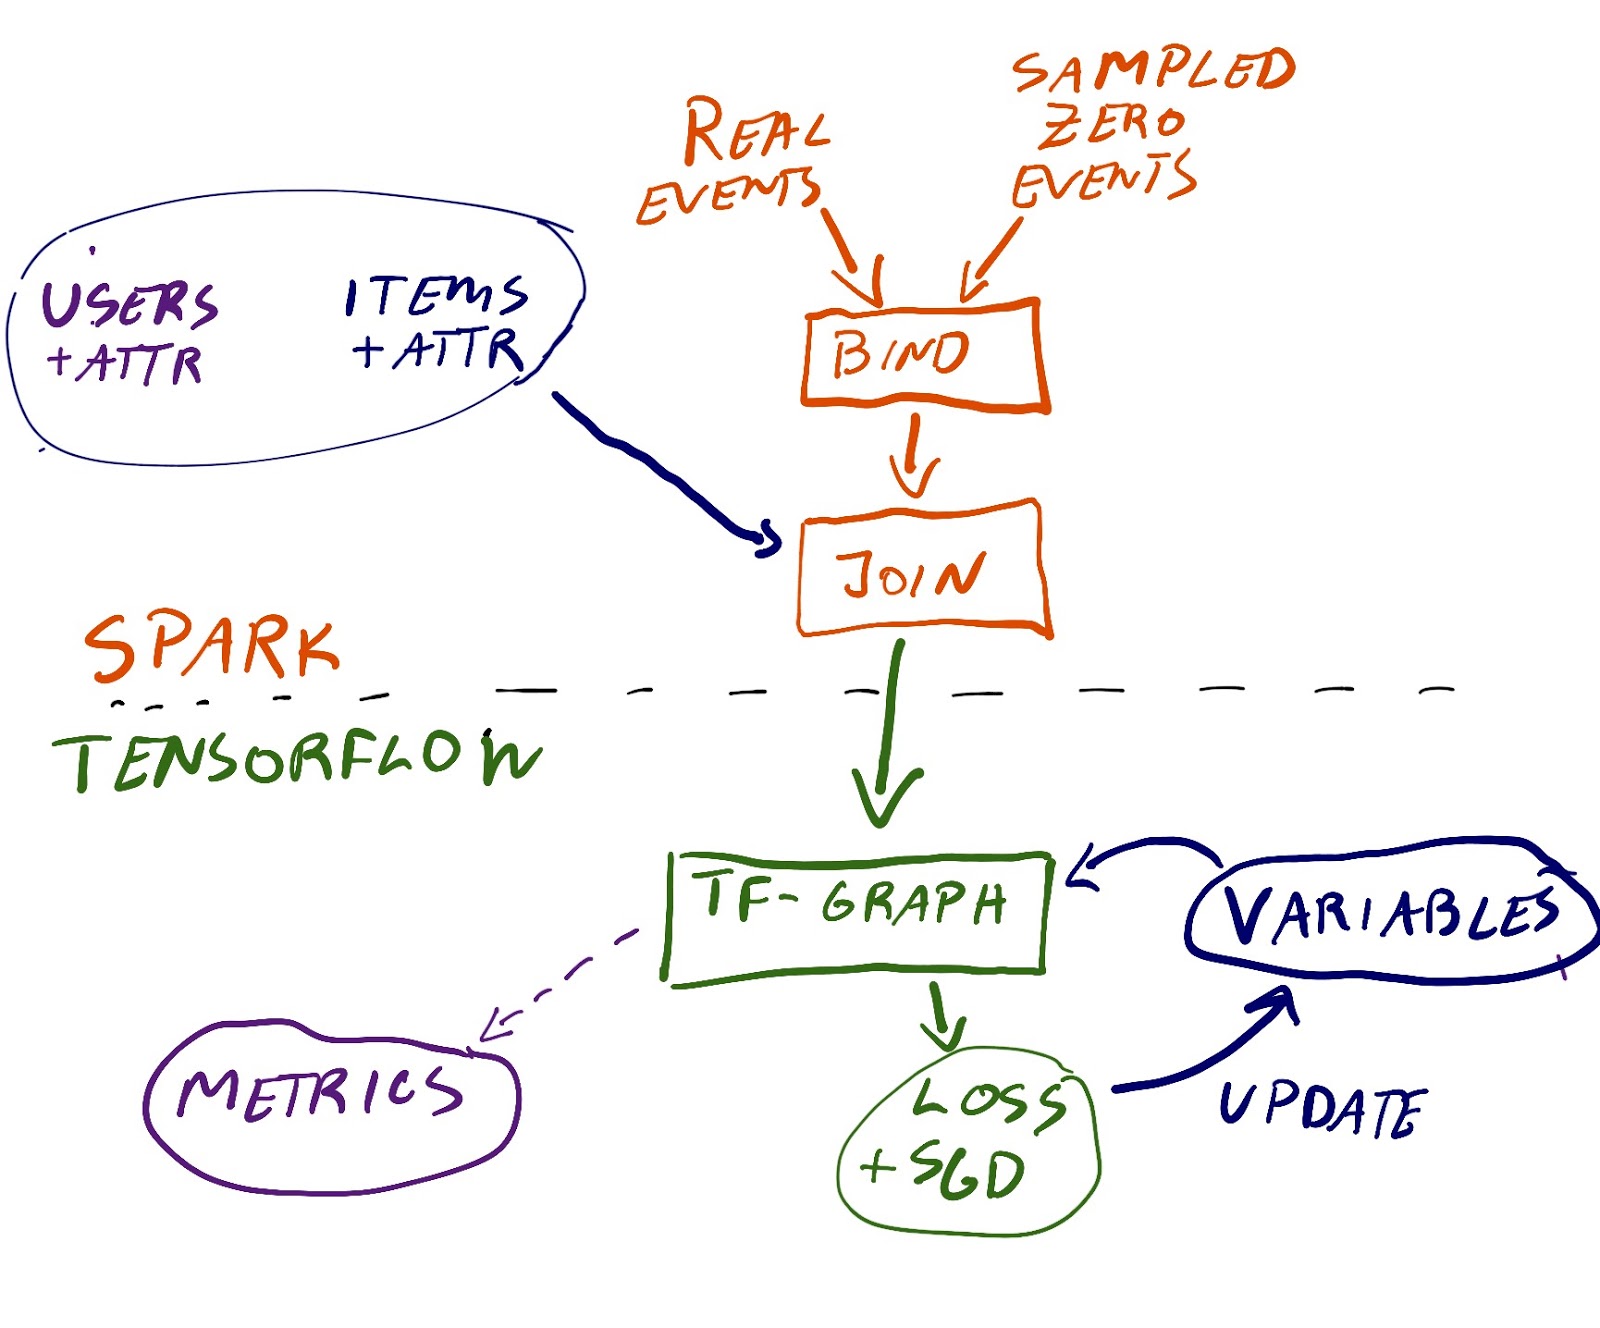 SAMPLED
ZERO
EVENTS
REAL
EVENTS
USERS
+ATTR
ITEMS
+ATTR
BIND
JOIN
SPARK
TENSORFLOW
TF-GRAPH
VARIABLES
METRICS
LOSS
+SGD
UPDATE